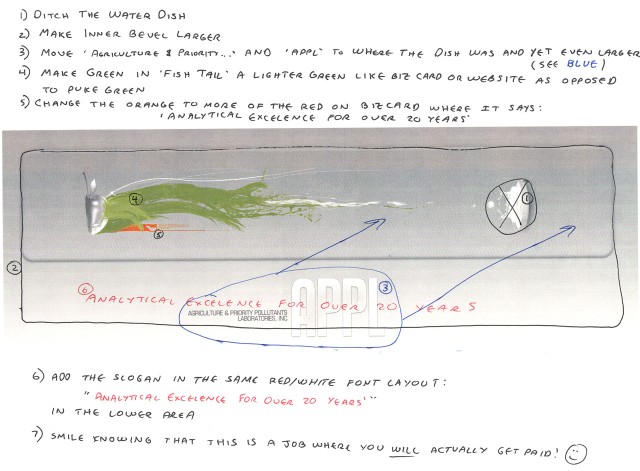 1) DITCH THE WATER DISH
2) MAKE INNER BEVEL LARGER
3) MOVE 'AGRICULTURE & PRIORITY...' AND 'APPL' TO WHERE THE DISH WAS AND YET EVEN LARGER
(SEE BLUE)
4) MAKE GREEN IN 'FISH TAIL' A LIGHTER GREEN LIKE BIZ CARD OR WEBSITE AS OPPOSED
TO PUKE GREEN
5) CHANGE THE ORANGE TO MORE OF THE RED ON BIZCARD WHERE IT SAYS:
'ANALYTICAL EXCELENCE FOR OVER 20 YEARS'
4
1
5
2
3
6 ANALYTICAL EXCELENCE FOR OVER 20 YEARS
APPL
AGRICULTURE & PRIORITY POLLUTANTS
LABORATORIES, INC
6) ADD THE SLOGAN IN THE SAME RED/WHITE FONT LAYOUT:
"ANALYTICAL EXCELENCE FOR OVER 20 YEARS'"
IN THE LOWER AREA
7) SMILE KNOWING THAT THIS IS A JOB WHERE YOU WILL ACTUALLY GET PAID!